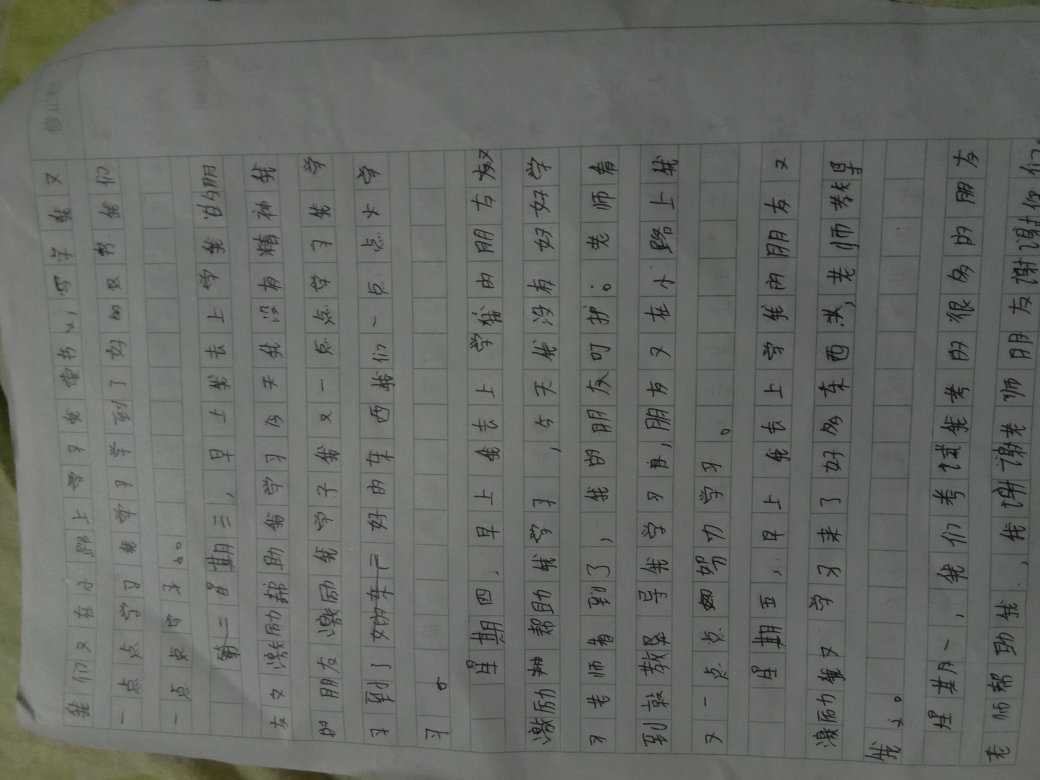 我们又在小路上学习我读书心，写字我又
一点点学习我学习学到了好的又帮我们
一点点学习。
第二星期三，早上我去上学我的朋
友又激励帮助我学习今天我没有精神我
的朋友激励我学子我又一点点学习我学
习到了好的东西我们一点点大学
习。
星期四．早上我去上学我的朋友又
激励帮助我学习，今天我没有好好学
习老师看到了，我的朋友可护：老师看
到就教导我学习，朋友又在小路上我
又一点点努力学习。
星期五，早上我去上学我的朋友又
激励我又学习来了好多东西，老师教导
我。
星期一，我们考试我考的很多的朋友
老师帮助我．，我谢谢老师朋友谢谢你们。